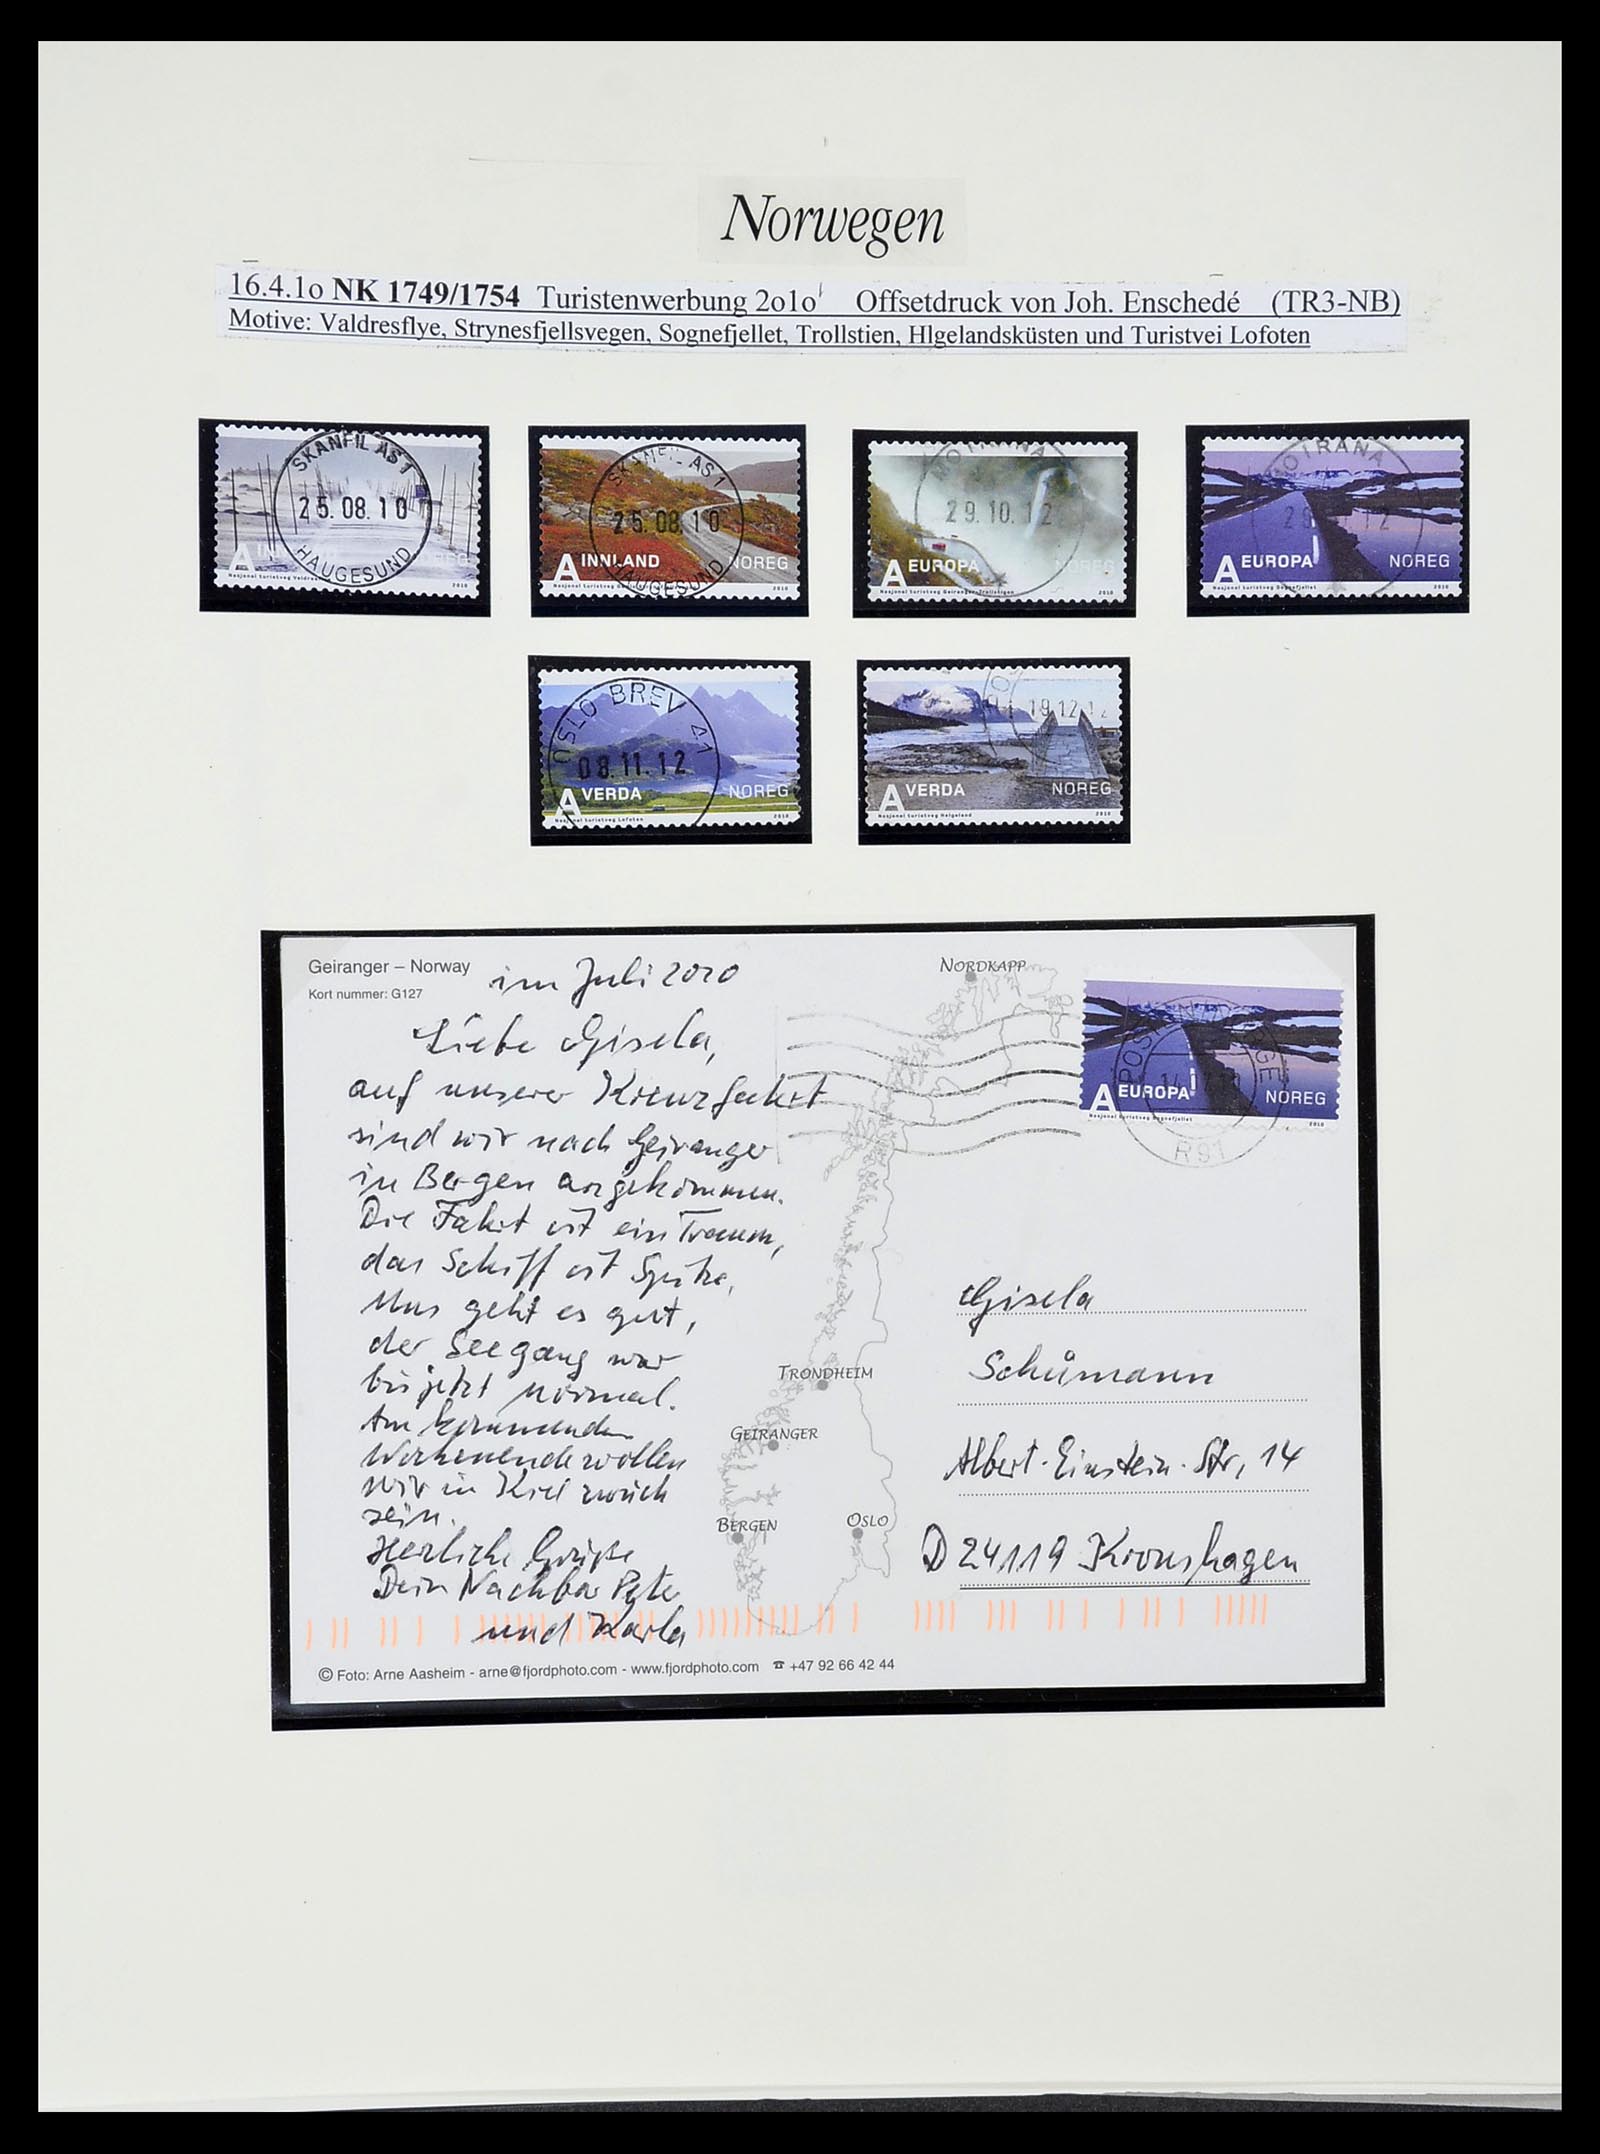 Norwegen
16.4.1o NK 1749/1754 Turistenwerbung 2o1o Offsetdruck von Joh. Enschedé (TR3-NB)
Motive: Valdresflye, Strynesfjellsvegen, Sognefjellet, Trollstien, Hlgelandsküsten und Turistvei Lofoten
SKANFIL AS 1
25.08.10
HAUGESUND
A
2010
SKANFIL AS 1
25.08.10
HAUGESUND
A INNLAND NOREG
2010
MO I RANA
29.10.12
A EUROPA NOREG
Nasjonal turistveg Geiranger-Trollstigen 2010
MO I RANA
A EUROPA NOREG
Nasjonal turistveg Sognefjellet 2010
OSLO BREV 41
08.11.12
A VERDA NOREG
Nasjonal turistveg Lofoten 2010
19.12.12
A VERDA NOREG
Nasjonal turistveg Helgeland 2010
Geiranger – Norway
Kort nummer: G127
im Juli 2010
Liebe Gisela,
auf unserer Kreuzfahrt
sind wir nach Geiranger
in Bergen angekommen.
Die Fahrt ist ein Traum,
das Schiff ist Spitze,
Uns geht es gut,
der Seegang war
bis jetzt normal.
Am kommenden
Wochenende wollen
wir in Kiel zurück
sein.
Herzliche Grüße
Dein Nachbar Peter
und Karla
NORDKAPP
TRONDHEIM
GEIRANGER
BERGEN
OSLO
A EUROPA NOREG
Nasjonal turistveg Sognefjellet 2010
R 91
Gisela
Schümann
Albert-Einstein-Str, 14
D 24119 Kronshagen
© Foto: Arne Aasheim - arne@fjordphoto.com - www.fjordphoto.com ☎ +47 92 66 42 44